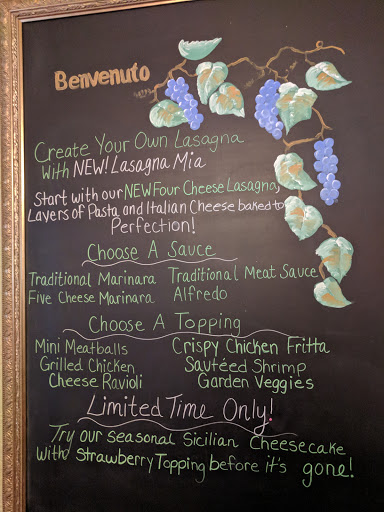 Benvenuto
Create Your Own Lasagna
With NEW! Lasagna Mia
Start with our NEW Four Cheese Lasagna,
Layers of Pasta and Italian Cheese baked to
Perfection!
Choose A Sauce
Traditional Marinara Traditional Meat Sauce
Five Cheese Marinara Alfredo
Choose A Topping
Mini Meatballs Crispy Chicken Fritta
Grilled Chicken Sautéed Shrimp
Cheese Ravioli Garden Veggies
Limited Time Only!
Try our seasonal Sicilian Cheesecake
with Strawberry Topping before it's gone!